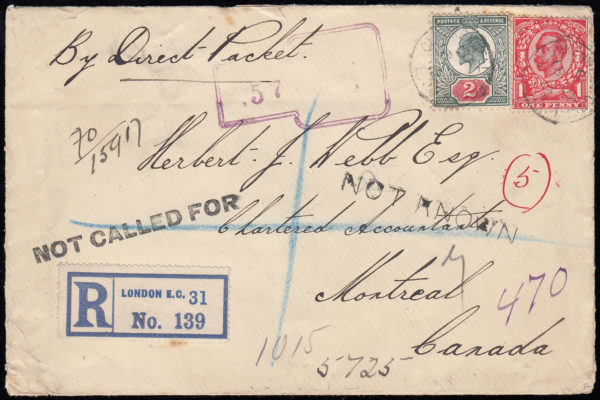 By Direct Packet.
POSTAGE & REVENUE
2D
1 1
ONE PENNY
.57
70/15917
Herbert. J. Webb Esq.
5
NOT KNOWN
NOT CALLED FOR
Chartered Accountant
R
LONDON E.C. 31
No. 139
Montreal
470
1015
5725
Canada